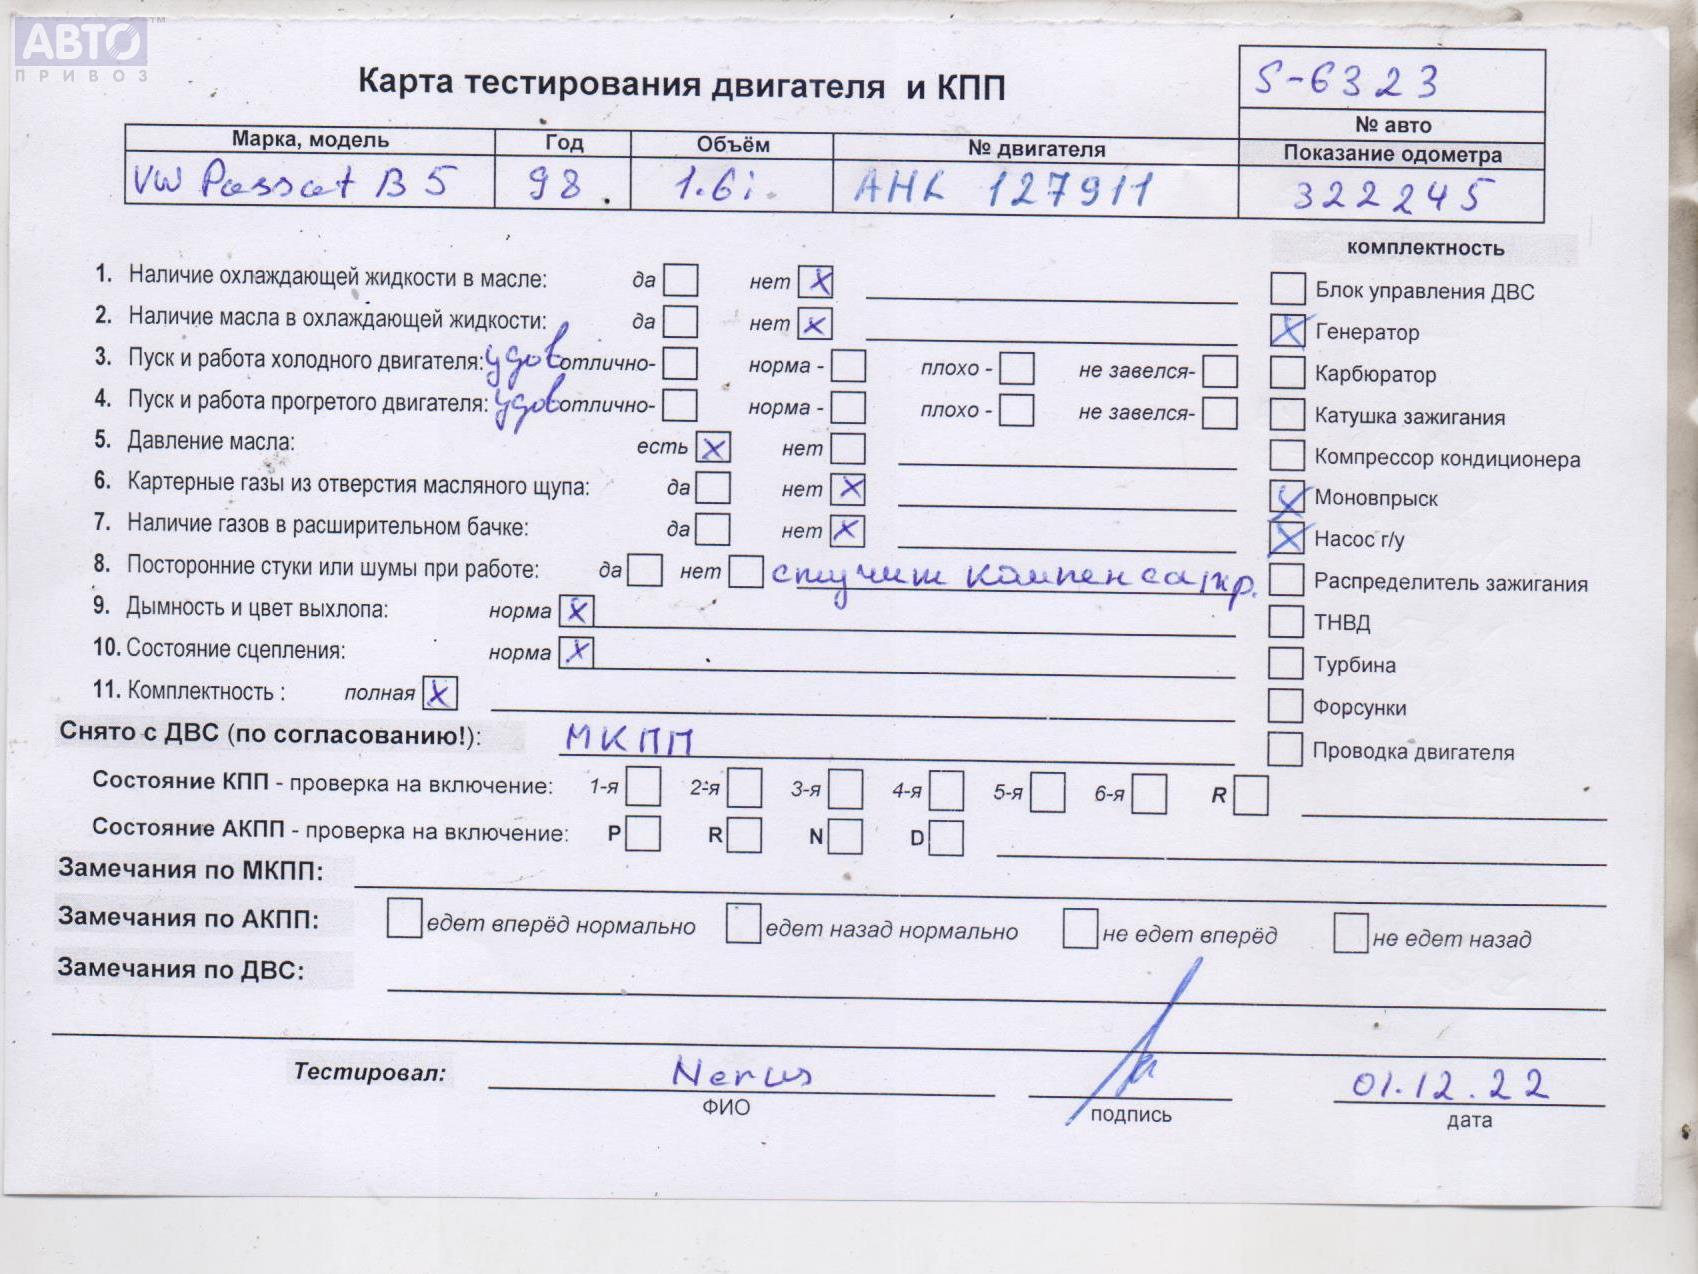 АВТО™
ПРИВОЗ
Карта тестирования двигателя и КПП
S-6323
№ авто
Марка, модель Год Объём № двигателя Показание одометра
VW Passat B5 98 1.6i. AHL 127911 322245
комплектность
1. Наличие охлаждающей жидкости в масле: да нет X
2. Наличие масла в охлаждающей жидкости: да нет X
3. Пуск и работа холодного двигателя: удов отлично- норма - плохо - не завелся-
4. Пуск и работа прогретого двигателя: удов отлично- норма - плохо - не завелся-
5. Давление масла: есть X нет
6. Картерные газы из отверстия масляного щупа: да нет X
7. Наличие газов в расширительном бачке: да нет X
8. Посторонние стуки или шумы при работе: да нет стучит компенсатор.
9. Дымность и цвет выхлопа: норма X
10. Состояние сцепления: норма X
11. Комплектность : полная X
Блок управления ДВС
X Генератор
Карбюратор
Катушка зажигания
Компрессор кондиционера
X Моновпрыск
X Насос г/у
Распределитель зажигания
ТНВД
Турбина
Форсунки
Проводка двигателя
Снято с ДВС (по согласованию!): МКПП
Состояние КПП - проверка на включение: 1-я 2-я 3-я 4-я 5-я 6-я R
Состояние АКПП - проверка на включение: P R N D
Замечания по МКПП:
Замечания по АКПП: едет вперёд нормально едет назад нормально не едет вперёд не едет назад
Замечания по ДВС:
Тестировал: 01.12.22
ФИО подпись дата